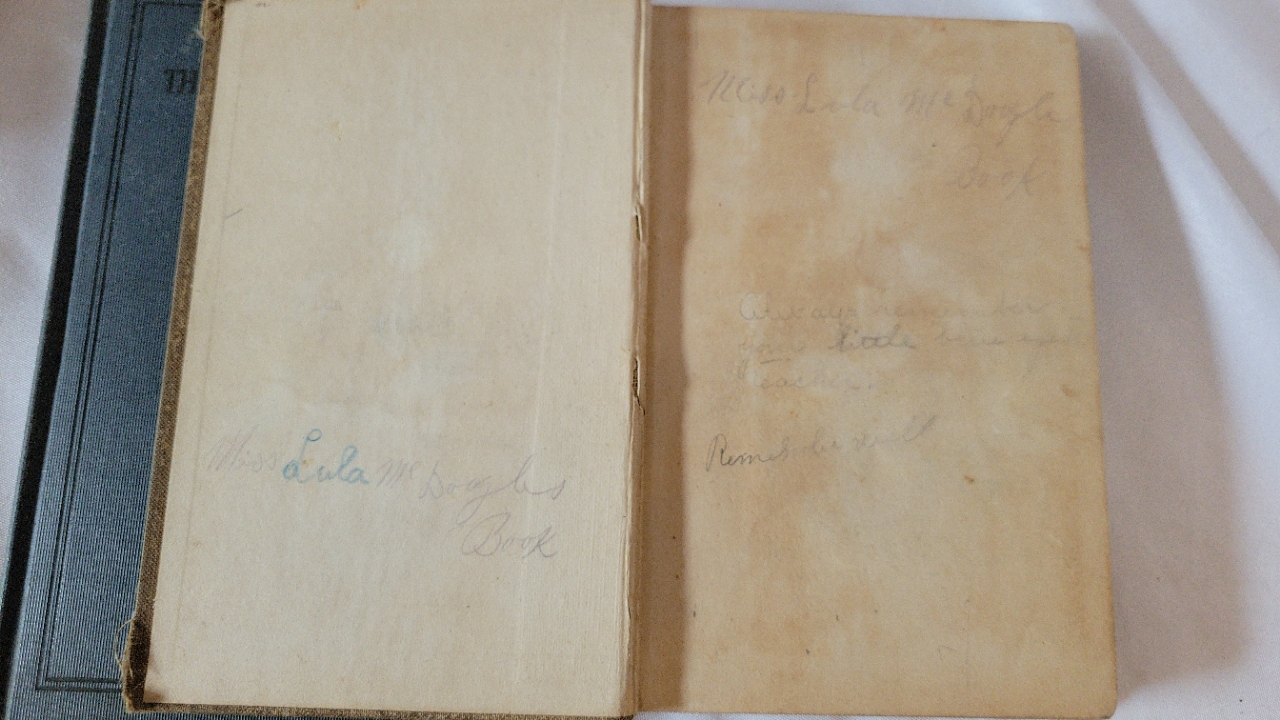 TH
Miss Lula Mc Dougles
Book
Miss Lula Mc Dougle
Book
Always remember
your little blue eyed
teacher.
Remember